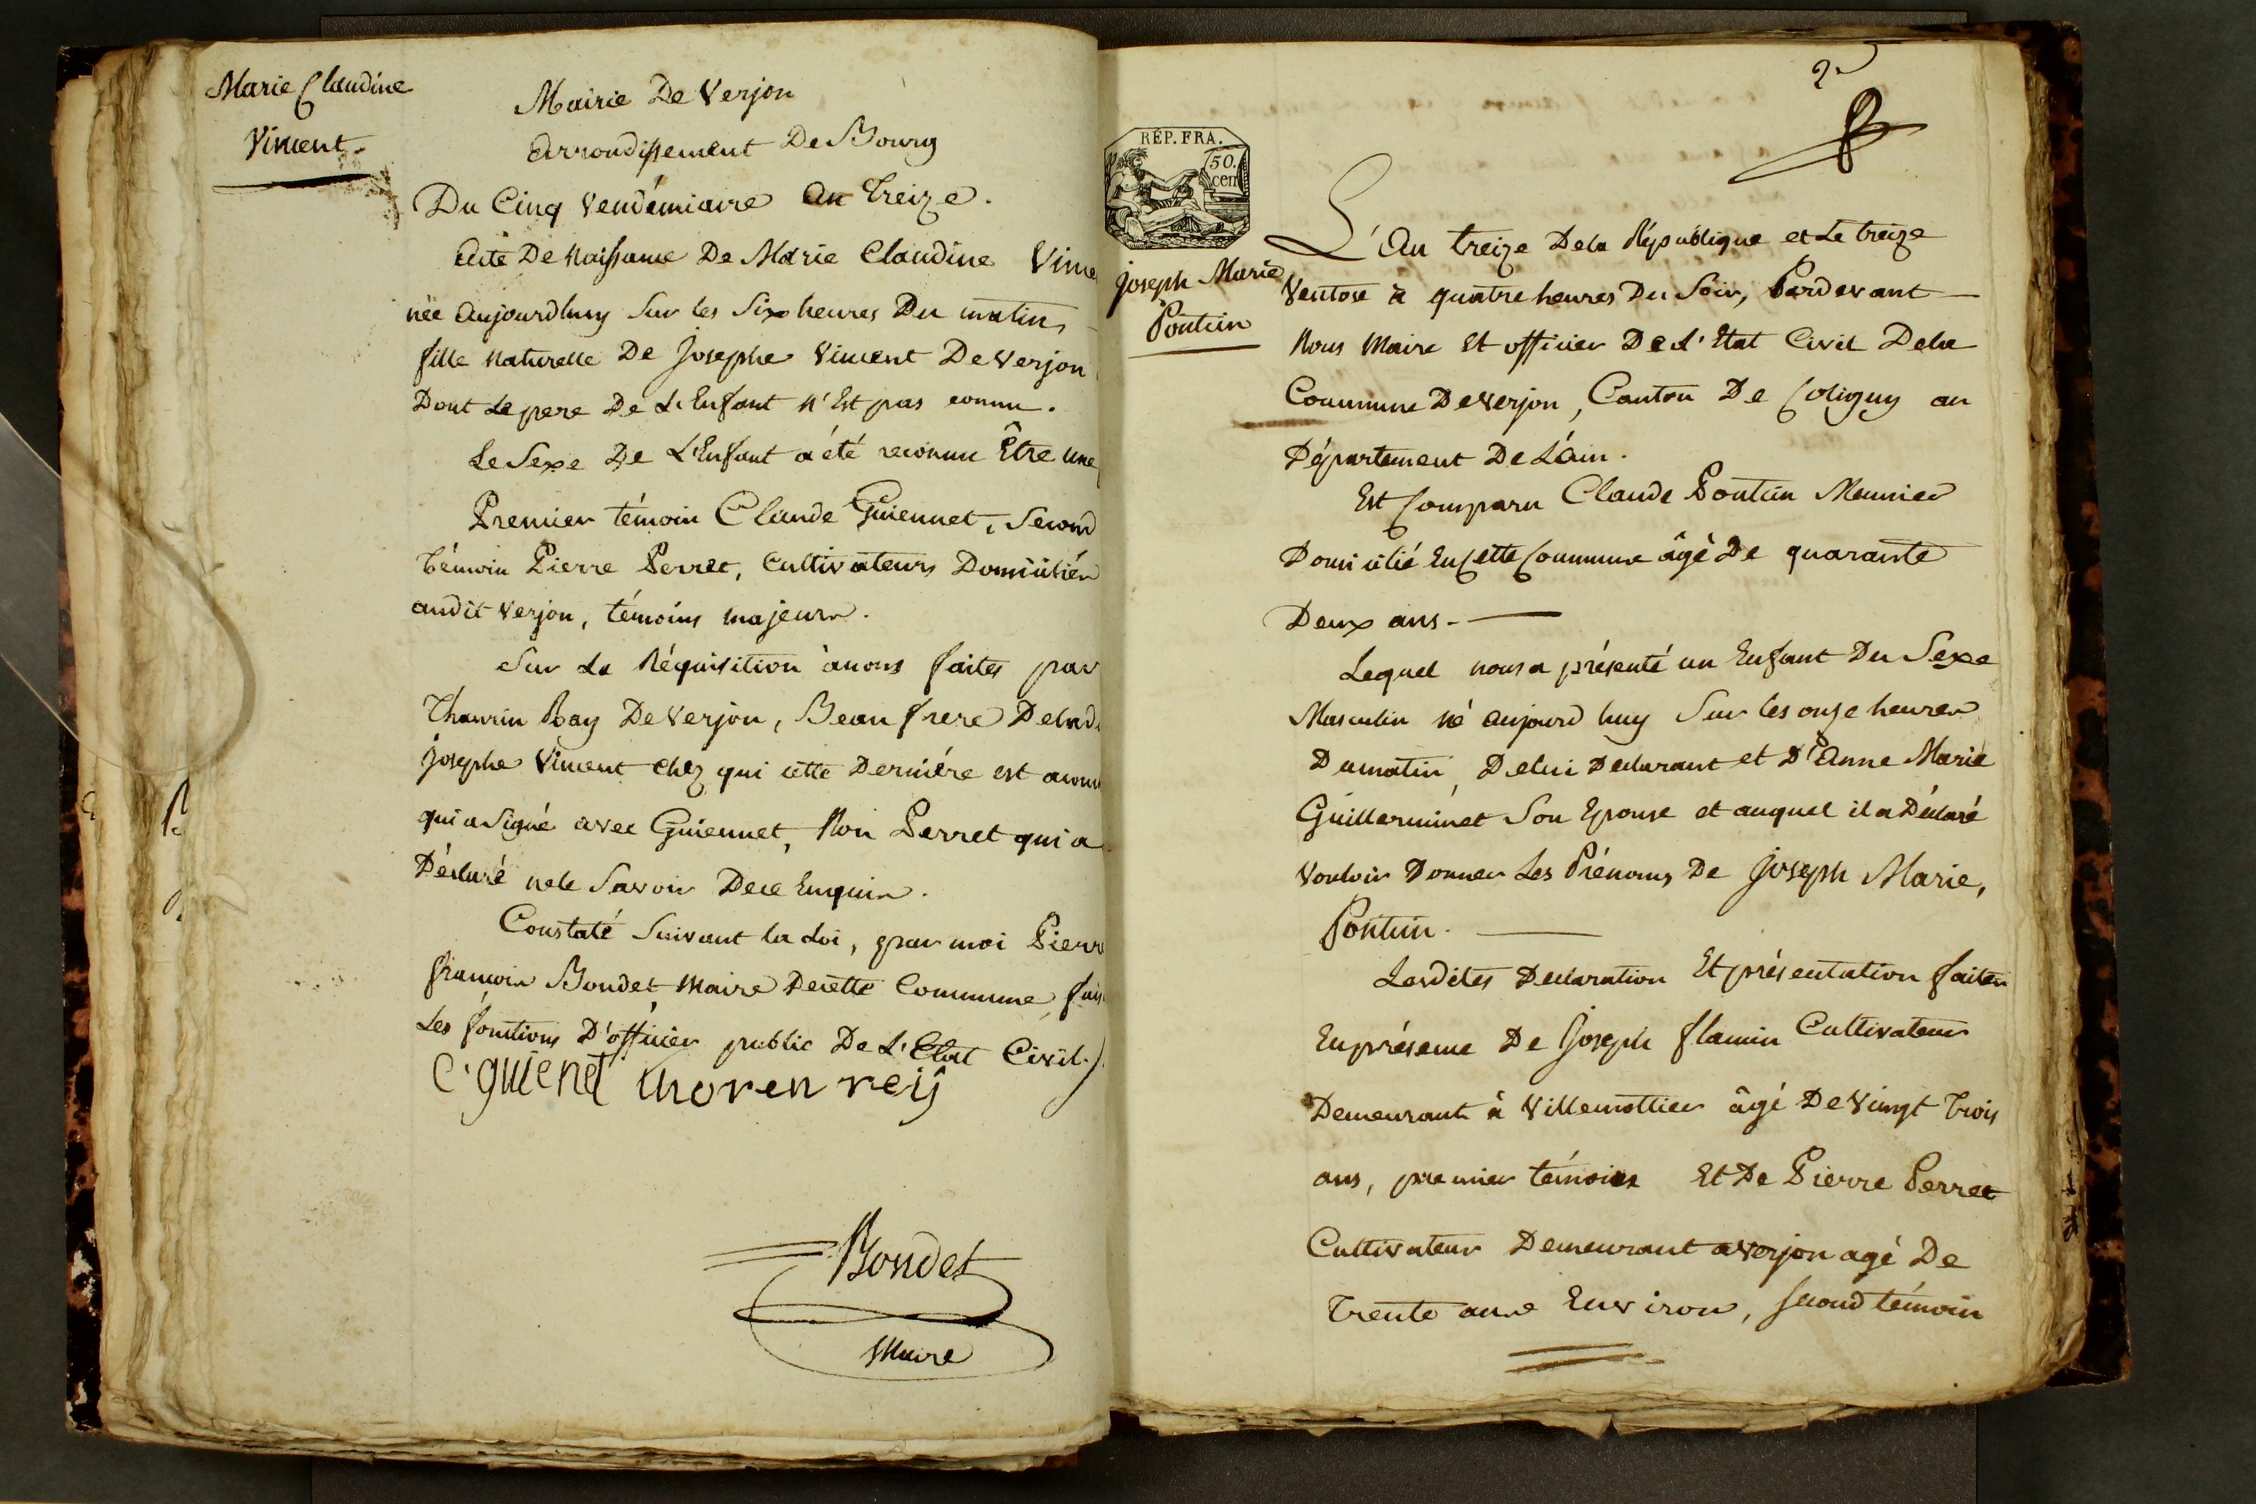 Marie Claudine
Vincent.
Mairie De Verjon
Arrondissement De Bourg
Du Cinq Vendémiaire An treize.
Acte De Naissance De Marie Claudine Vince
née Aujourdhuy Sur les Six heures Du matin,
fille Naturelle De Josephe Vincent De Verjon
Dont Le pere De L'Enfant N'Est pas connu.
Le Sexe De L'Enfant a été reconnu Être une
Premier témoin Claude Guiennet, Second
témoin Pierre Perret, Cultivateurs Domiciliés
audit Verjon, témoins majeurs.
Sur La Réquisition à nous faites par
Thaurin Ray De Verjon, Beau frere De lad
Josephe Vincent chez qui cette Derniére est accou
qui a Signé avec Guiennet, Non Perret qui a
Déclaré ne le Savoir De ce Enquis.
Constaté Suivant la Loi, par moi Pierre
françois Bondet Maire De cette Commune, fais
Les fonctions D'officier public De L'Etat Civil.
C. guienet thoren reij
Bondet
Maire
2e
RÉP. FRA.
50.
cen
Joseph Marie
Pontun
L'An treize De la République et Le treize
Ventose à quatre heures Du Soir, Pardevant
Nous Maire Et officier De L'Etat Civil De la
Commune De Verjon, Canton De Coligny au
Département De L'ain.
Est Comparu Claude Pontun Meunier
Domicilié En Cette Commune âgé De quarante
Deux ans.
Lequel nous a présenté un Enfant Du Sexe
Masculin né aujourd huy Sur les onze heures
Du matin, De lui Declarant et D'Anne Marie
Guillerminet Son Epouse et auquel il a Déclaré
Vouloir Donner Les Prénoms De Joseph Marie,
Pontun.
Lesdites Declaration Et présentation faites
En présence De Joseph flamin Cultivateur
Demeurant à Villemottier âgé De Vingt trois
ans, premier témoin Et De Pierre Perret
Cultivateur Demeurant a Verjon agé De
Trente ans Environ, Second témoin